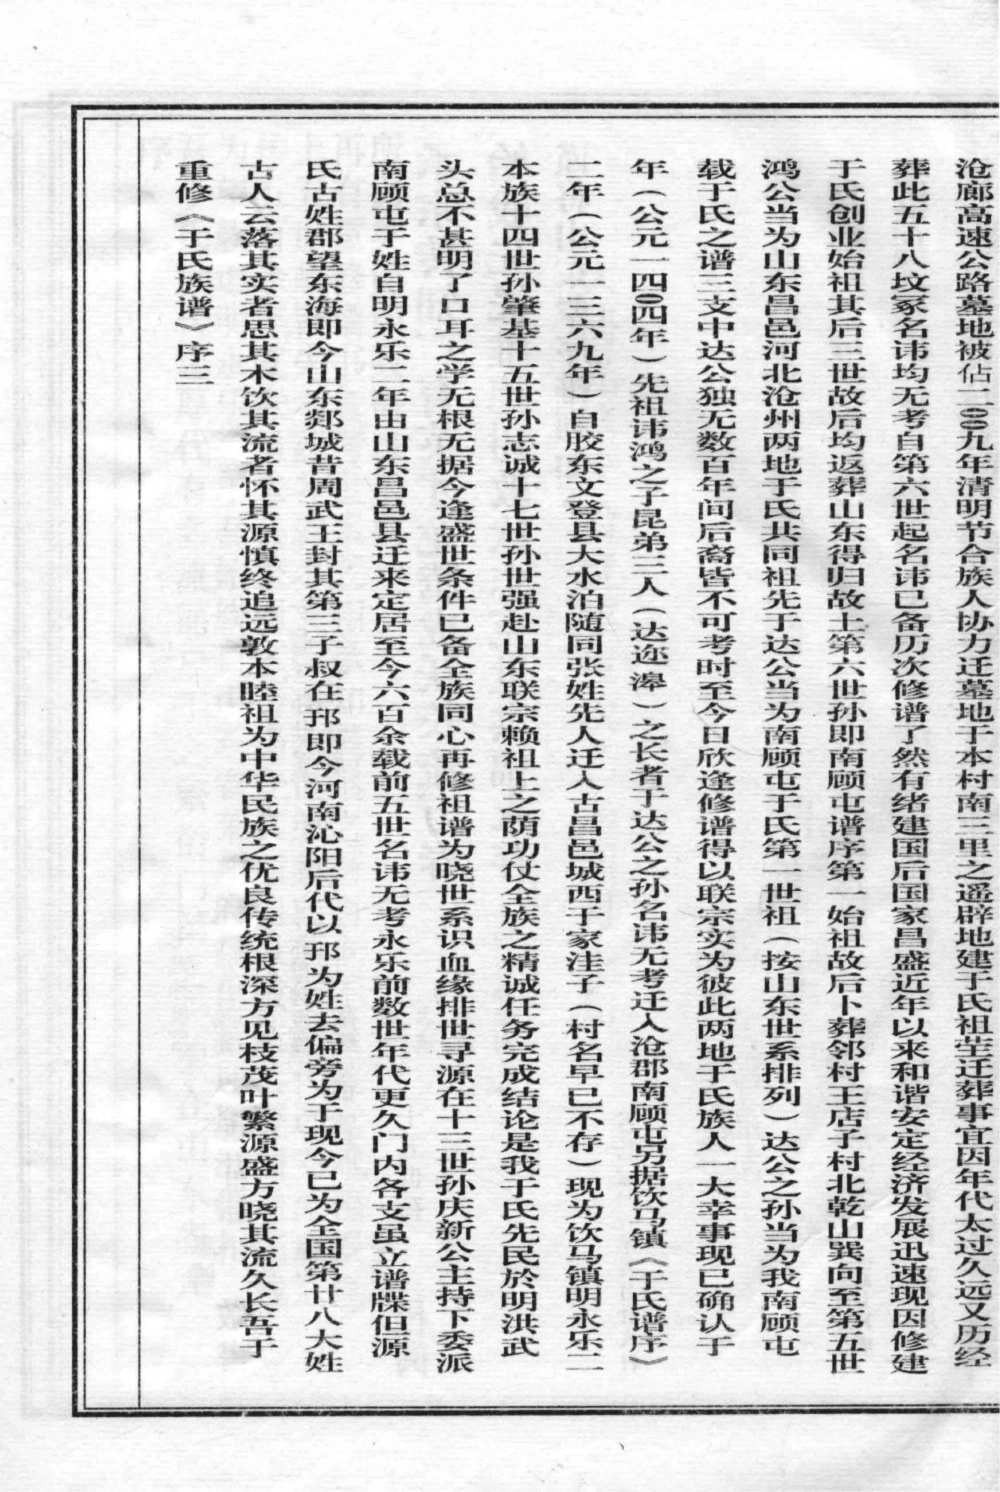 重修《于氏族谱》序三
古人云落其实者思其木饮其流者怀其源慎终追远敦本睦祖为中华民族之优良传统根深方见枝茂叶繁源盛方晓其流久长吾于
氏古姓郡望东海即今山东郯城昔周武王封其第三子叔在邘即今河南沁阳后代以邘为姓去偏旁为于现今已为全国第廿八大姓
南顾屯于姓自明永乐二年由山东昌邑县迁来定居至今六百余载前五世名讳无考永乐前数世年代更久门内各支虽立谱牒但源
头总不甚明了口耳之学无根无据今逢盛世条件已备全族同心再修祖谱为晓世系识血缘排世寻源在十三世孙庆新公主持下委派
本族十四世孙肇基十五世孙志诚十七世孙世强赴山东联宗赖祖上之荫功仗全族之精诚任务完成结论是我于氏先民於明洪武
二年（公元一三六九年）自胶东文登县大水泊随同张姓先人迁入古昌邑城西于家洼子（村名早已不存）现为饮马镇明永乐二
年（公元一四〇四年）先祖讳鸿之子昆弟三人（达迩滜）之长者于达公之孙名讳无考迁入沧郡南顾屯另据饮马镇《于氏谱序》
载于氏之谱三支中达公独无数百年间后裔皆不可考时至今日欣逢修谱得以联宗实为彼此两地于氏族人一大幸事现已确认于
鸿公当为山东昌邑河北沧州两地于氏共同祖先于达公当为南顾屯于氏第一世祖（按山东世系排列）达公之孙当为我南顾屯
于氏创业始祖其后三世故后均返葬山东得归故土第六世孙即南顾屯谱序第一始祖故后卜葬邻村王店子村北乾山巽向至第五世
葬此五十八坟冢名讳均无考自第六世起名讳已备历次修谱了然有绪建国后国家昌盛近年以来和谐安定经济发展迅速现因修建
沧廊高速公路墓地被佔二〇〇九年清明节合族人协力迁墓地于本村南三里之遥辟地建于氏祖茔迁葬事宜因年代太过久远又历经